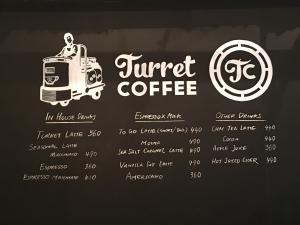 Turret
COFFEE
TC
IN HOUSE DRINKS
TURRET LATTE 360
SEASONAL LATTE
MACCHIATO 490
ESPRESSO 360
ESPRESSO MACCHIATO 410
ESPRESSO & MILK
TO GO LATTE 490
MOCHA 490
SEA SALT CARAMEL LATTE 490
VANILLA SOY LATTE 490
AMERICANO 360
OTHER DRINKS
CHAI TEA LATTE 490
COCOA 490
APPLE JUICE 360
HOT SPICED CIDER 490